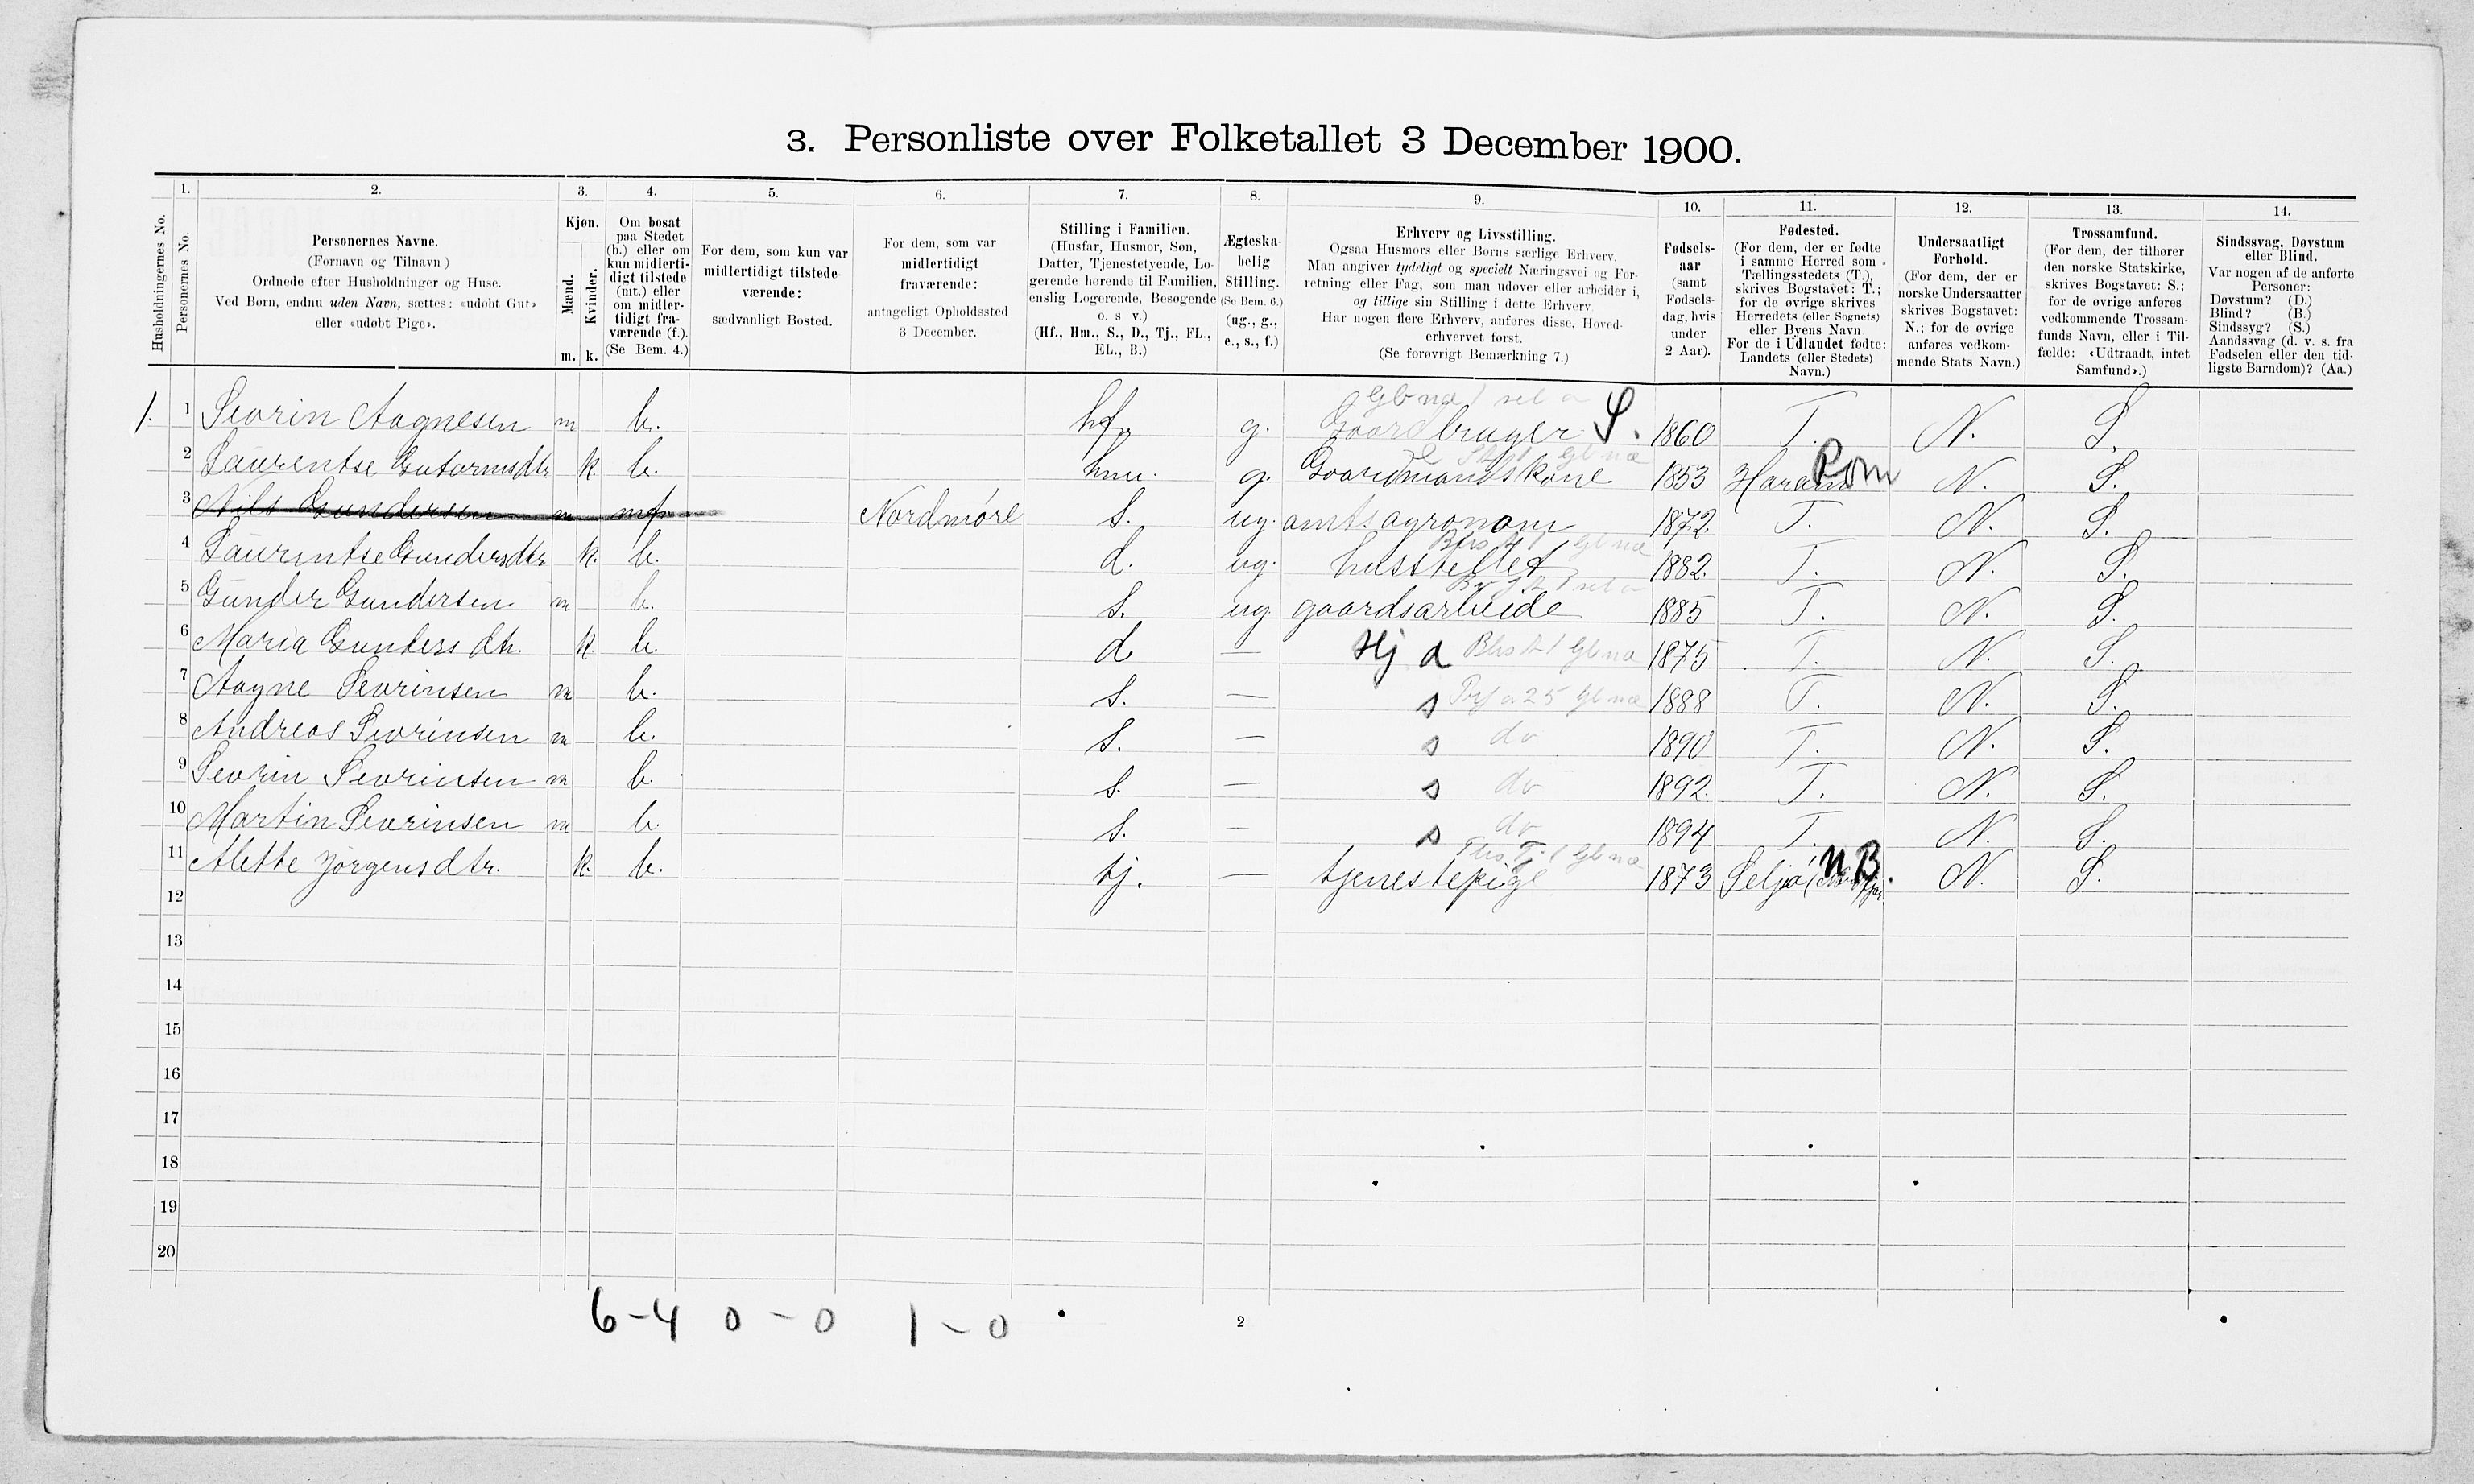 3. Personliste over Folketallet 3 December 1900.
1. 2. 3. 4. 5. 6. 7. 8. 9. 10. 11. 12. 13. 14.
Husholdningernes No.
Personernes No.
Personernes Navne.
(Fornavn og Tilnavn)
Ordnede efter Husholdninger og Huse.
Ved Børn, endnu uden Navn, sættes: «udøbt Gut»
eller «udøbt Pige».
Kjøn.
Mænd.
Kvinder.
m. k.
Om bosat
paa Stedet
(b.) eller om
kun midlerti-
digt tilstede
(mt.) eller
om midler-
tidigt fra-
værende (f.).
(Se Bem. 4.)
For dem, som kun var
midlertidigt tilstede-
værende:
sædvanligt Bosted.
For dem, som var
midlertidigt
fraværende:
antageligt Opholdssted
3 December.
Stilling i Familien.
(Husfar, Husmor, Søn,
Datter, Tjenestetyende, Lo-
gerende hørende til Familien,
enslig Logerende, Besøgende
o. s v.)
(Hf., Hm., S., D., Tj., FL.,
EL., B.)
Ægteska-
belig
Stilling.
(Se Bem. 6.)
(ug., g.,
e., s., f.)
Erhverv og Livsstilling.
Ogsaa Husmors eller Børns særlige Erhverv.
Man angiver tydeligt og specielt Næringsvei og For-
retning eller Fag, som man udøver eller arbeider i,
og tillige sin Stilling i dette Erhverv.
Har nogen flere Erhverv, anføres disse, Hoved-
erhvervet først.
(Se forøvrigt Bemærkning 7.)
Fødsels-
aar
(samt
Fødsels-
dag, hvis
under
2 Aar).
Fødested.
(For dem, der er fødte
i samme Herred som
Tællingsstedets (T.),
skrives Bogstavet: T.;
for de øvrige skrives
Herredets (eller Sognets)
eller Byens Navn
For de i Udlandet fødte:
Landets (eller Stedets)
Navn.)
Undersaatligt
Forhold.
(For dem, der er
norske Undersaatter
skrives Bogstavet:
N.; for de øvrige
anføres vedkom-
mende Stats Navn.)
Trossamfund.
(For dem, der tilhører
den norske Statskirke,
skrives Bogstavet: S.;
for de øvrige anføres
vedkommende Trossam-
funds Navn, eller i Til-
fælde: «Udtraadt, intet
Samfund».)
Sindssvag, Døvstum
eller Blind.
Var nogen af de anførte
Personer:
Døvstum? (D.)
Blind? (B.)
Sindssyg? (S.)
Aandssvag (d. v. s. fra
Fødselen eller den tid-
ligste Barndom)? (Aa.)
1. 1 Sevrin Aagnesen m b. hf. g. Gaardbruger S. 1860 T. N. S.
2 Laurentse Gutormsdtr k b. hm. g. Gaardmandskone 1853 Haram Rom N. S.
3 Nils Gundersen m mf Nordmøre S. ug. amtsagronom 1872. T. N. S.
4 Laurintse Gundersdtr k. b. d. ug. husstellet 1882. T. N. S.
5 Gunder Gundersen m b. S. ug gaardsarbeide 1885 T. N. S.
6 Maria Gunders dtr. k. b. d — Hj d 1875 T. N. S.
7 Aagne Sevrinsen m b. S. — s 1888 T. N. S.
8 Andreas Sevrinsen m b. S. — s do 1890 T. N. S.
9 Sevrin Sevrinsen m b S. — s do 1892. T. N. S.
10 Martin Sevrinsen m b. S. — s do 1894 T. N. S.
11 Alette Jørgensdtr. k. b. tj. — tjenestepige 1873 Seljø N.B. N. S.
12
13
14
15
16
17
18
19
20
6-4 0-0 1-0
2